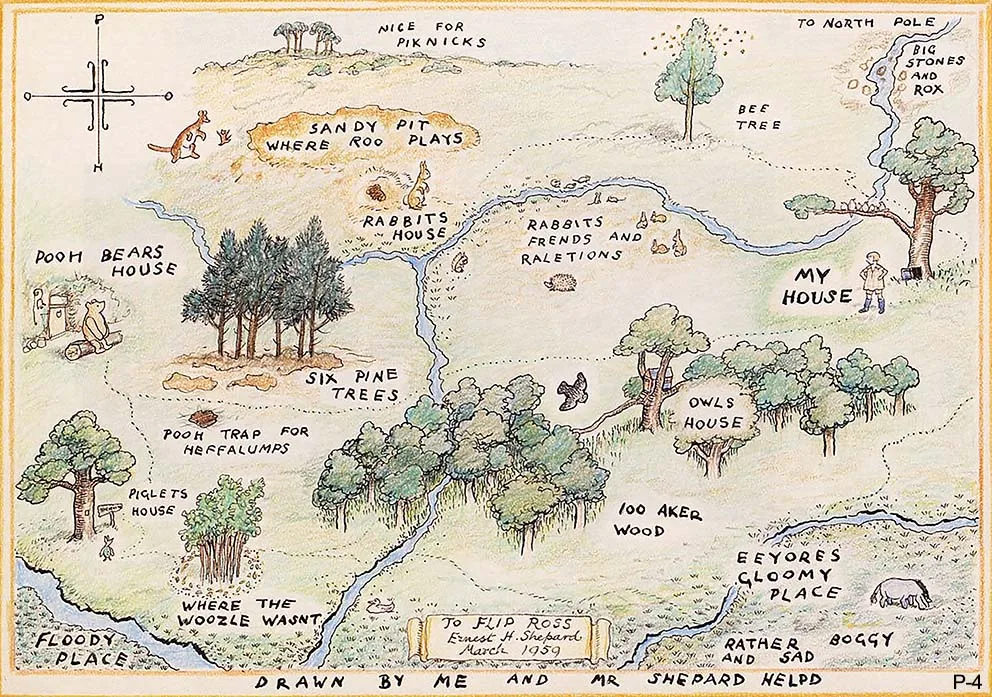 P
O
O
H
NICE FOR
PIKNICKS
TO NORTH POLE
BIG
STONES
AND
ROX
BEE
TREE
SANDY PIT
WHERE ROO PLAYS
RABBITS
HOUSE
RABBITS
FRENDS AND
RALETIONS
POOH BEARS
HOUSE
MY
HOUSE
SIX PINE
TREES
OWLS
HOUSE
POOH TRAP FOR
HEFFALUMPS
PIGLETS
HOUSE
100 AKER
WOOD
EEYORES
GLOOMY
PLACE
WHERE THE
WOOZLE WASNT
FLOODY
PLACE
TO FLIP ROSS
Ernest H. Shepard
March 1959
RATHER BOGGY
AND SAD
DRAWN BY ME AND MR SHEPARD HELPD
P-4